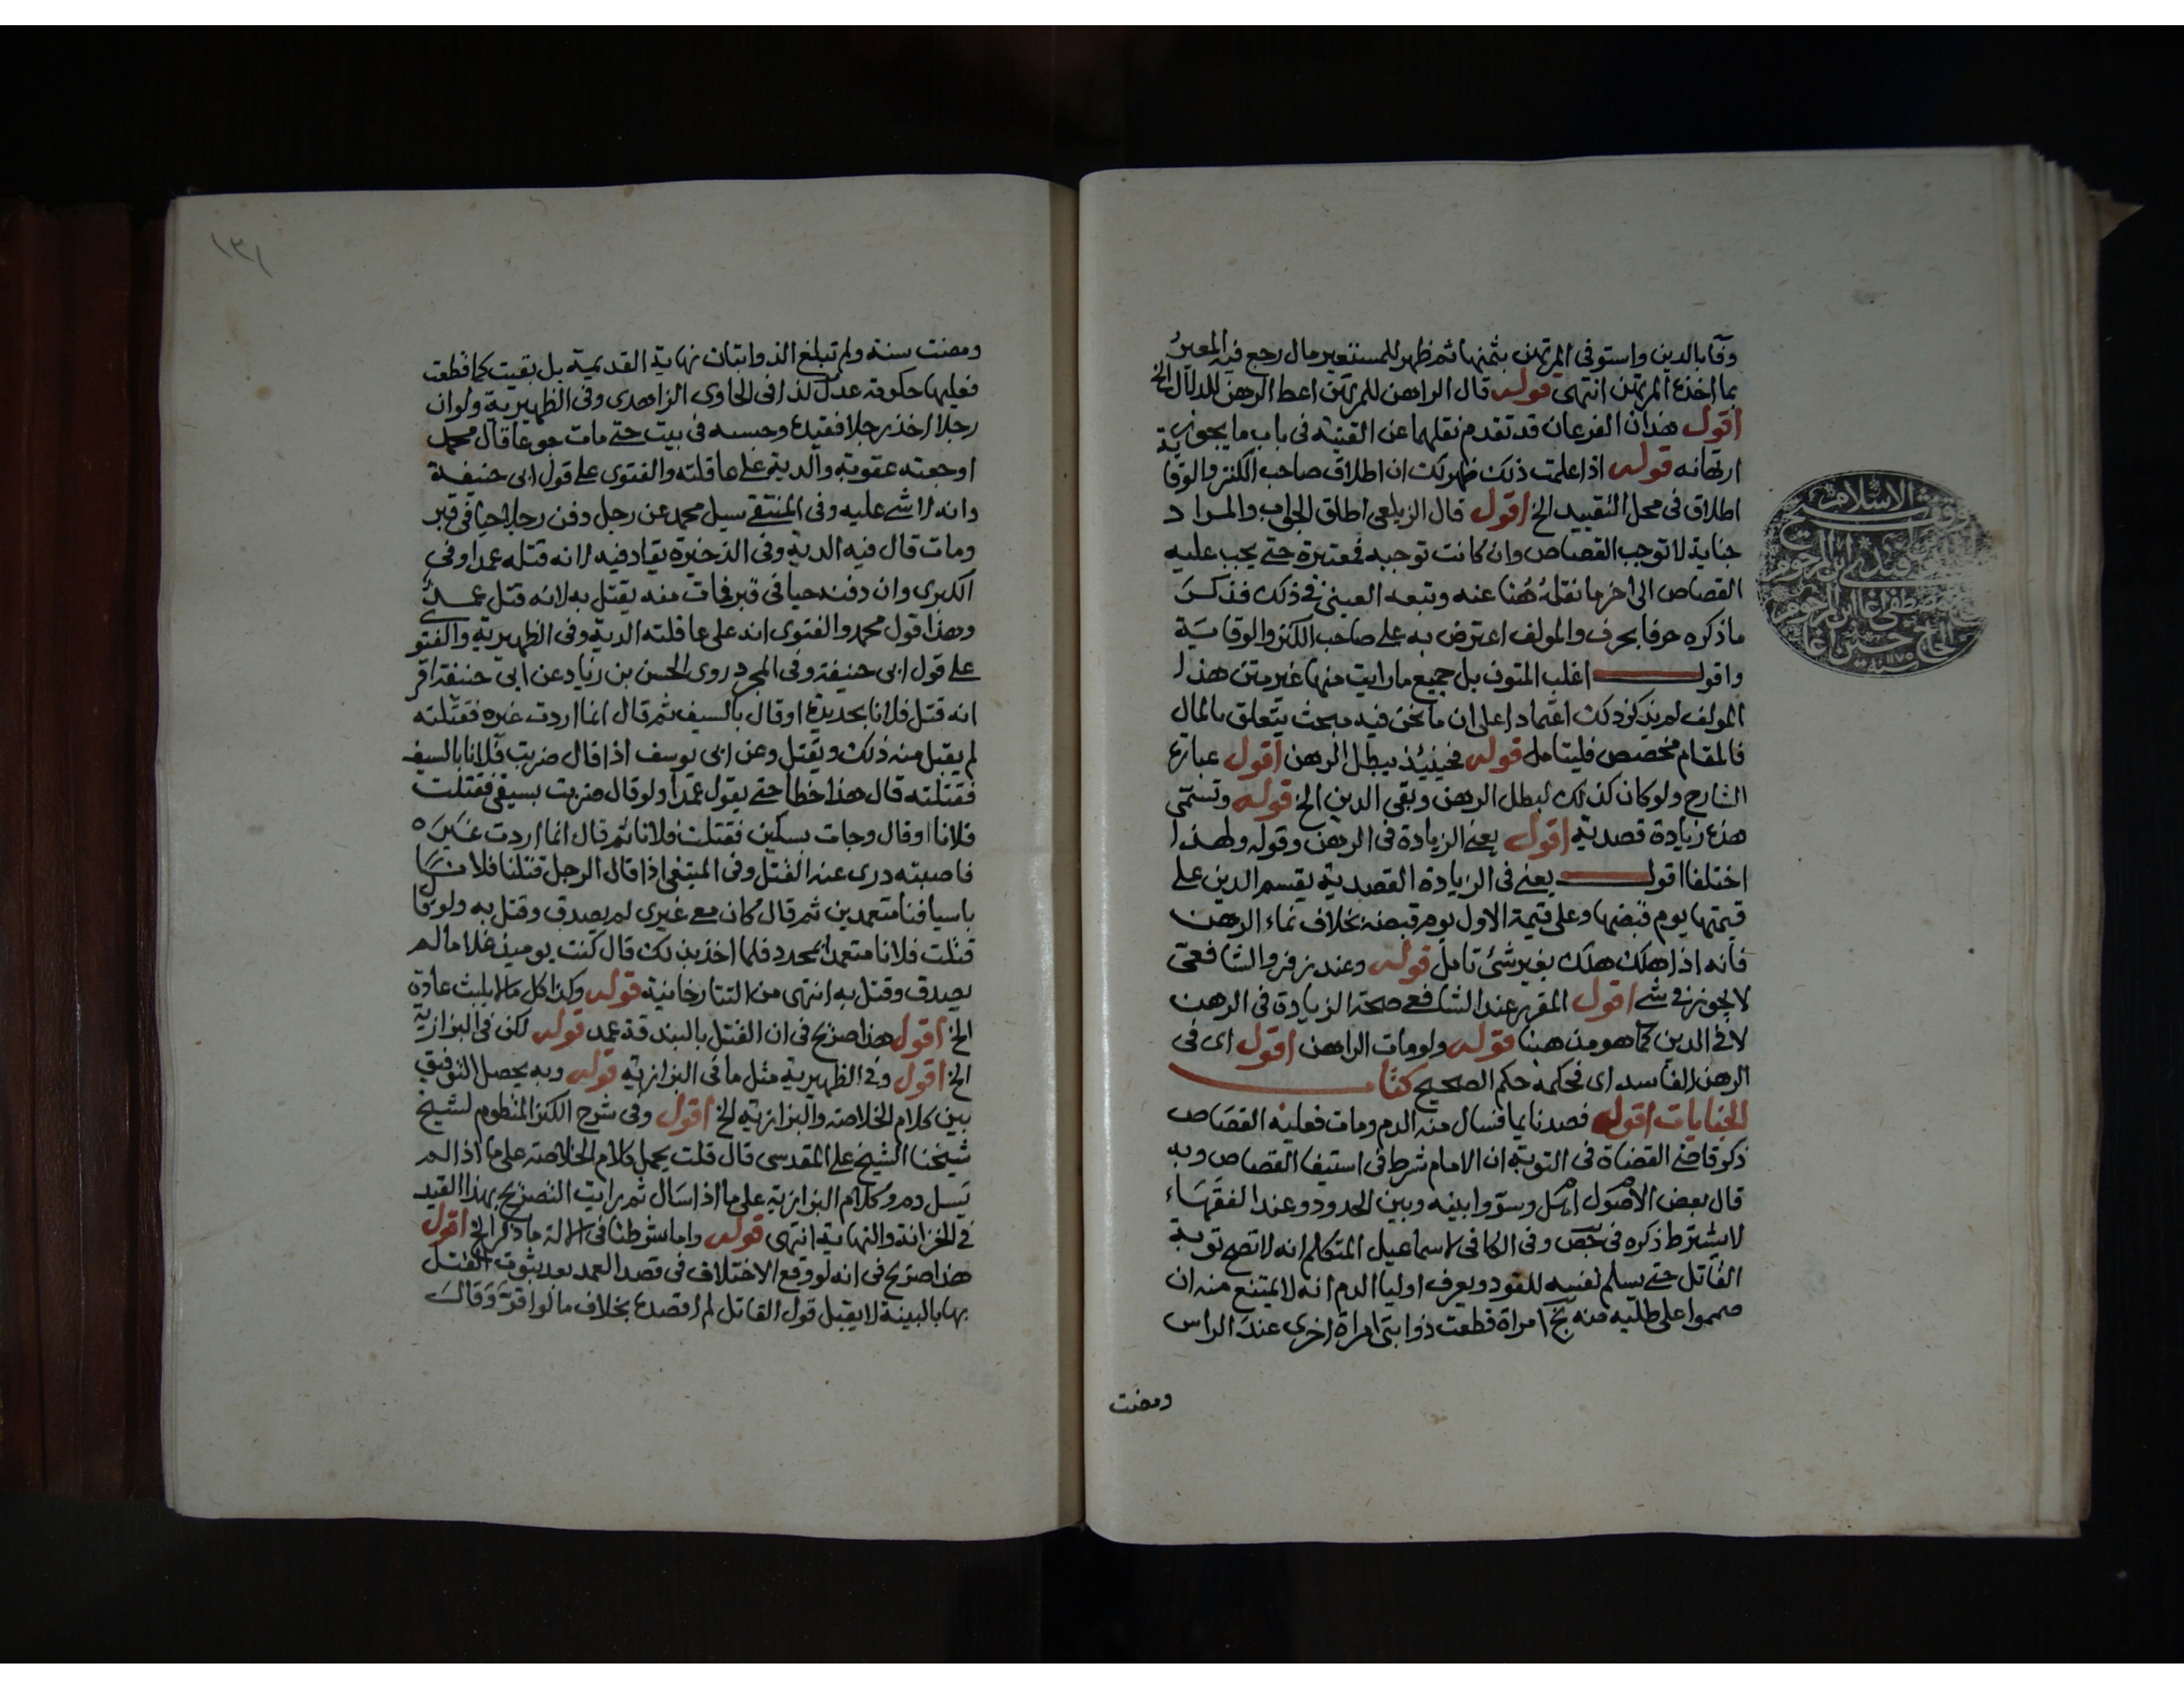 وفا بالدين واستوفى المرتهن بثمنها ثم ظهر للمستعير مال رجع فيه المعير
بما اخذه المرتهن انتهى قوله قال الراهن للمرتهن اعط الرهن للدلال الخ
اقول هذان الفرعان قد تقدم نقلهما عن القنية فى باب ما يجوز
ارتهانه قوله اذا علمت ذلك ظهر لك ان اطلاق صاحب الكنز والوقاية
اطلاق فى محل التقييد الخ اقول قال الزيلعى اطلق الجواب والمراد
جناية لا توجب القصاص وان كانت توجبه فمعتبرة حتى يجب عليه
القصاص الى اخر ما نقله هنا عنه وتبعه العينى فى ذلك فذكر
ما ذكره حرفا بحرف والمولف اعترض به على صاحب الكنز والوقاية
واقول اغلب المتون بل جميع ما رايت منها غير متن هذا
المولف لم يذكر ذلك اعتمادا على ان ما نحن فيه مبحث يتعلق بالمال
فالمقام مخصص فليتامل قوله فحينئذ يبطل الرهن اقول عبارة
الشارح ولو كان كذلك لبطل الرهن وبقى الدين الخ قوله وتسمى
هذه زيادة قصدية اقول يعنى الزيادة فى الرهن وقوله ولهذا
اختلفا اقول يعنى فى الزيادة القصدية يقسم الدين على
قيمتها يوم قبضها وعلى قيمة الاول يوم قبضه بخلاف نماء الرهن
فانه اذا هلك هلك بغير شئ تامل قوله وعند زفر والشافعى
لا يجوز فى شى اقول المقرر عند الشافعى صحة الزيادة فى الرهن
لا فى الدين كما هو مذهبنا قوله ولو مات الراهن اقول اى فى
الرهن الفاسد اى فحكمه حكم الصحيح كتاب
الجنايات اقول فصد نايما فسال منه الدم ومات فعليه القصاص
ذكر قاضى القضاة فى التوبة ان الامام شرط فى استيفا القصاص وبه
قال بعض الاصول اهل وسووا بينه وبين الحدود وعند الفقهاء
لا يشترط ذكره فى حص وفى الكافى لاسماعيل المتكلم انه لا تصح توبة
القاتل حتى يسلم نفسه للقود ويعرف اوليا الدم انه لا يمتنع منه ان
صمموا على طلبه منه بخ امراة قطعت ذوابتى امراة اخرى عند الراس
ومضت
وقف شيخ الاسلام
افندى ابن المرحوم
مصطفى اغا ابن المرحوم
الحاج حسين اغا
سنة ١١٧٥
١٣١
ومضت سنة ولم تبلغ الذوابتان نهاية القديمة بل بقيت كما قطعت
فعليها حكومة عدل كذا فى الحاوى الزاهدى وفى الظهيرية ولو ان
رجلا اخذ رجلا فقيده وحبسه فى بيت حتى مات جوعا قال محمد
اوجعته عقوبة والدية على عاقلته والفتوى على قول ابى حنيفة
وانه لا شى عليه وفى المنتقى سيل محمد عن رجل دفن رجلا حيا فى قبر
ومات قال فيه الدية وفى الذخيرة يقاد فيه لانه قتله عمدا وفى
الكبرى وان دفنه حيا فى قبر فمات منه يقتل به لانه قتل عمد
وهذا قول محمد والفتوى انه على عاقلته الدية وفى الظهيرية والفتوى
على قول ابى حنيفة وفى المجرد روى الحسن بن زياد عن ابى حنيفة اقر
انه قتل فلانا بحديدة او قال بالسيف ثم قال انما اردت غيره فقتلته
لم يقبل منه ذلك ويقتل وعن ابى يوسف اذا قال ضربت فلانا بالسيف
فقتلته قال هذا خطا حتى يقول عمدا ولو قال ضربت بسيفى فقتلت
فلانا او قال وجات بسكين فقتلت فلانا ثم قال انما اردت غيره
فاصبته درى عنه القتل وفى المبتغى اذا قال الرجل قتلنا فلانا
باسيافنا متعمدين ثم قال كان مع غيرى لم يصدق وقتل به ولو قال
قتلت فلانا متعمدا بمحدد فلما اخذ بذلك قال كنت يوميذ غلاما لم
يصدق وقتل به انتهى من التتارخانية قوله وكذا كل ما لا يلبث عادة
الخ اقول هذا صريح فى ان القتل بالبندقة عمد قوله لكن فى البزازية
الخ اقول وفى الظهيرية مثل ما فى البزازية قوله وبه يحصل التوفيق
بين كلام الخلاصة والبزازية الخ اقول وفى شرح الكنز المنظوم لشيخ
شيخنا الشيخ على المقدسى قال قلت يحمل كلام الخلاصة على ما اذا لم
يسل دم وكلام البزازية على ما اذا سال ثم رايت التصريح بهذا القيد
فى الخزانة والنهاية انتهى قوله واما شرطنا فى الالة ما ذكر الخ اقول
هذا صريح فى انه لو وقع الاختلاف فى قصد العمد بعد ثبوت القتل
بها بالبينة لا يقبل قول القاتل لم اقصده بخلاف ما لو اقر وقال